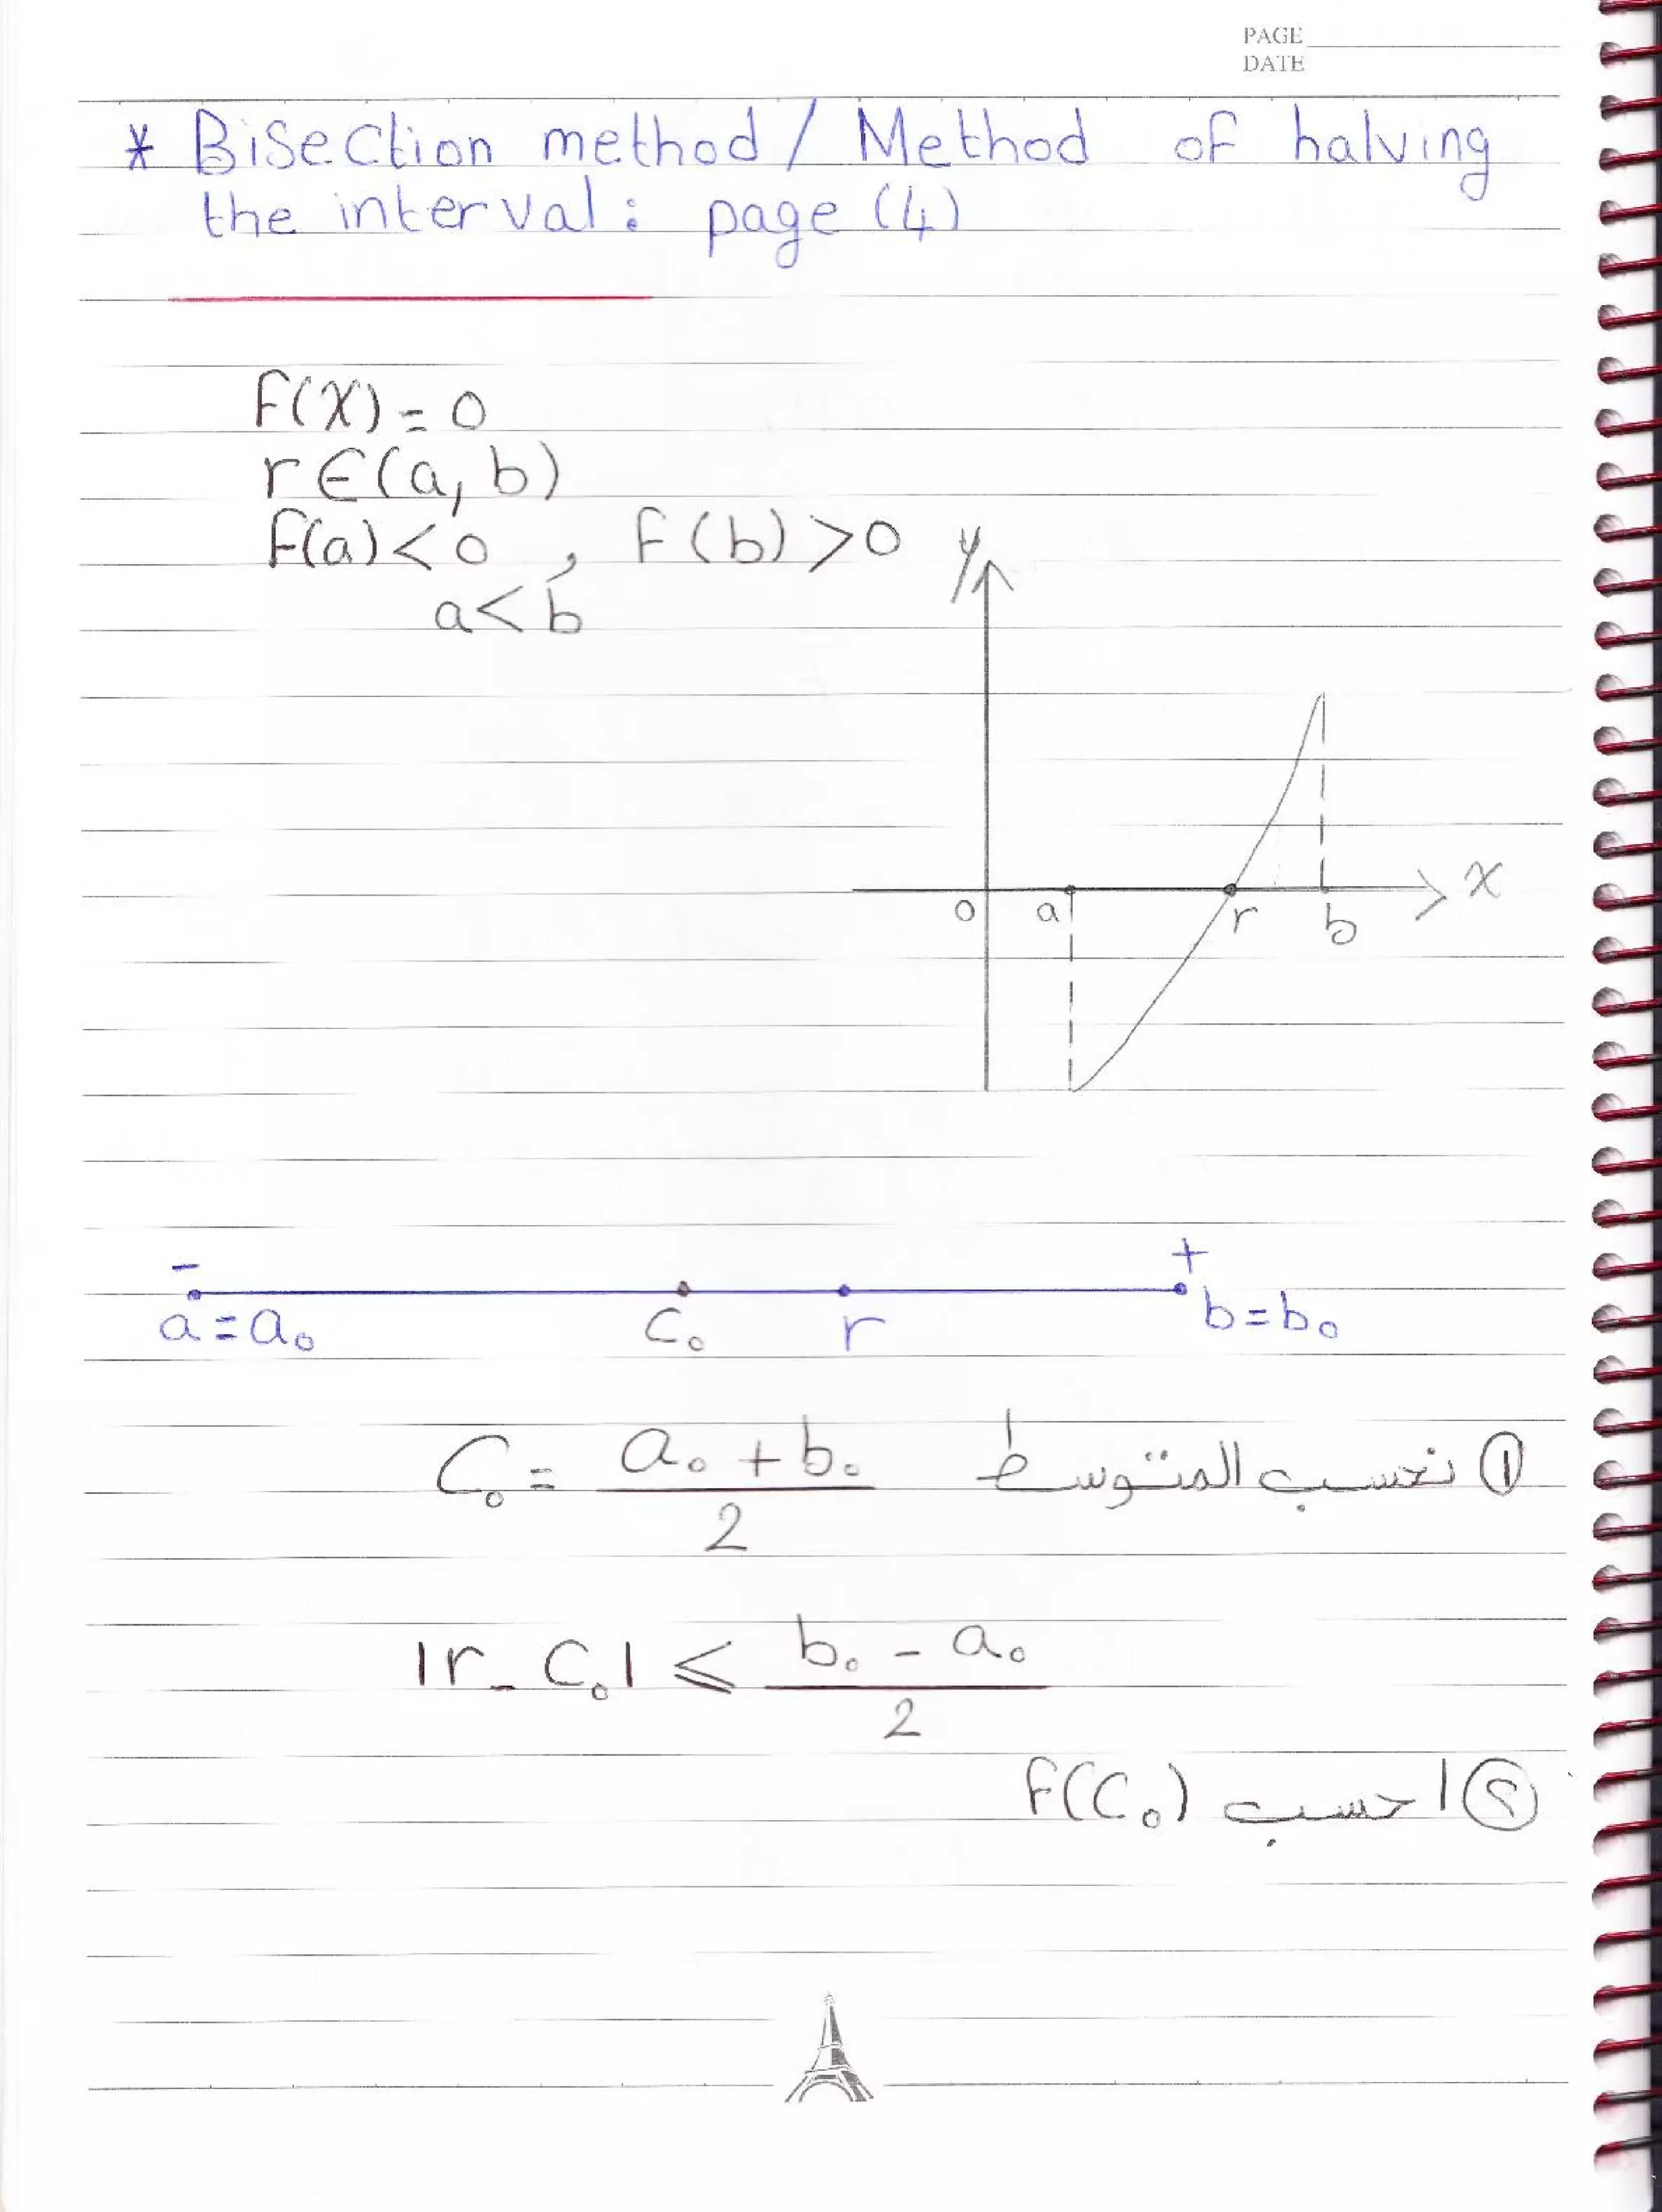 PAGE
DATE
* Bisection method / Method of halving
the interval : page (4)
F(x) = 0
r ∈ (a, b)
F(a) < 0 , F(b) > 0
a < b
y
x
o a r b
- +
a = a₀ c₀ r b = b₀
① نحسب المتوسط C₀ = (a₀ + b₀) / 2
|r - C₀| ⩽ (b₀ - a₀) / 2
② احسب F(C₀)